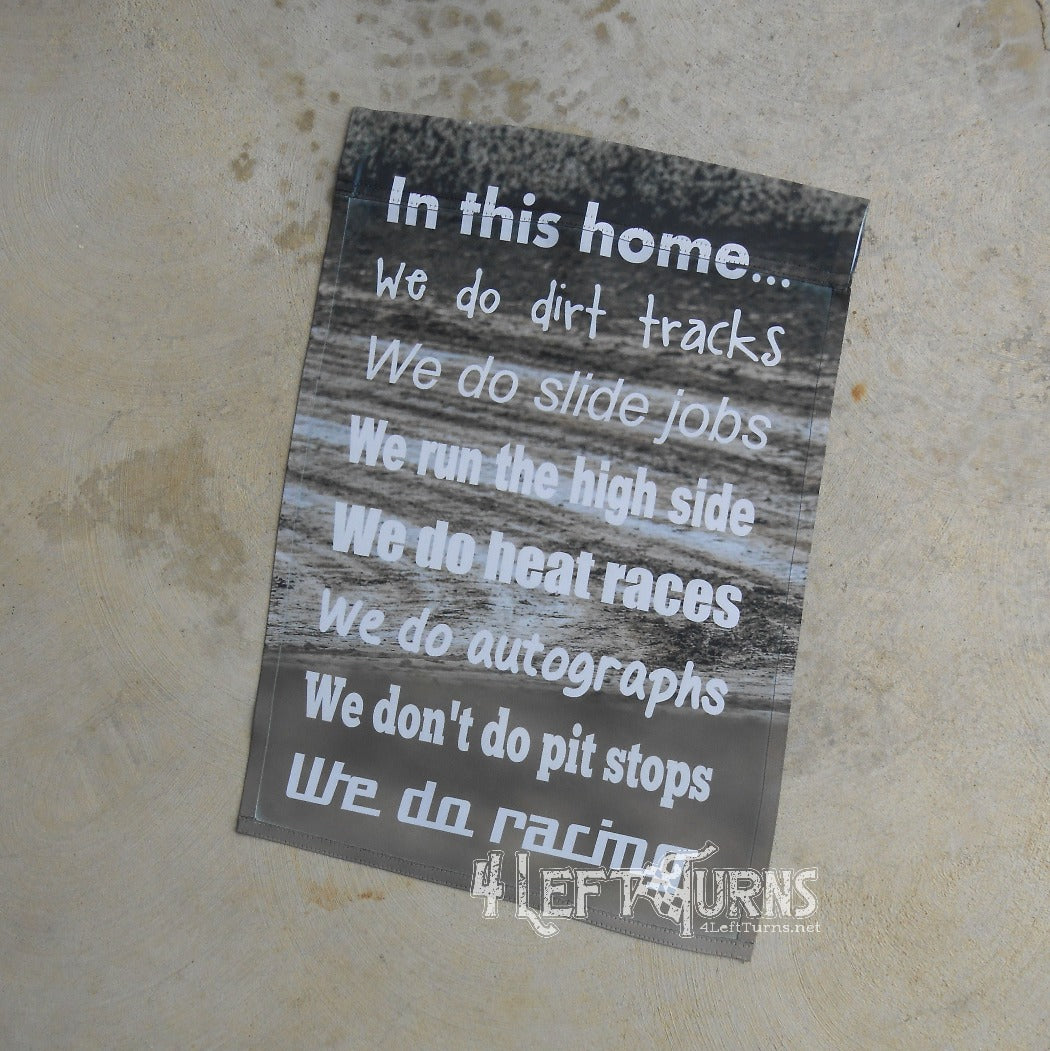 In this home...
We do dirt tracks
We do slide jobs
We run the high side
We do heat races
We do autographs
We don't do pit stops
We do racing
4 Left Turns
4LeftTurns.net